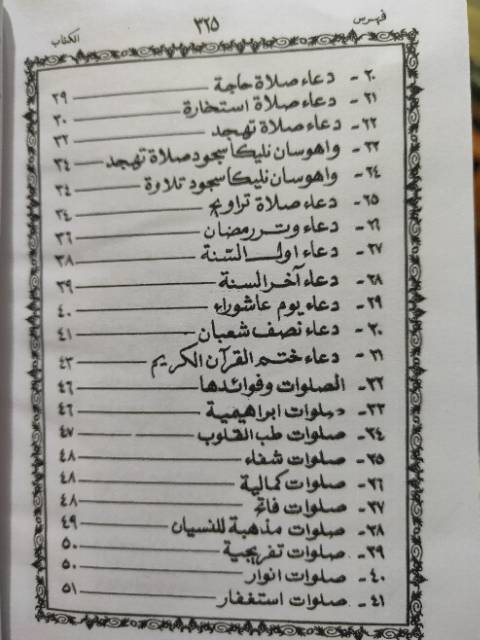 فهرس ٣٢٥ الكتاب
٢٠- دعاء صلاة حاجة ٢٩
٢١- دعاء صلاة استخارة ٣٠
٢٢- دعاء صلاة تهجد ٣٢
٢٣- واهوسان نليكا سجود صلاة تهجد ٣٤
٢٤- واهوسان نليكا سجود تلاوة ٣٤
٢٥- دعاء صلاة تراويح ٣٤
٢٦- دعاء وتر رمضان ٣٦
٢٧- دعاء اول السنة ٣٨
٢٨- دعاء آخر السنة ٣٩
٢٩- دعاء يوم عاشوراء ٤٠
٣٠- دعاء نصف شعبان ٤١
٣١- دعاء ختم القرآن الكريم ٤٣
٣٢- الصلوات وفوائدها ٤٦
٣٣- صلوات ابراهيمية ٤٦
٣٤- صلوات طب القلوب ٤٧
٣٥- صلوات شفاء ٤٨
٣٦- صلوات كمالية ٤٨
٣٧- صلوات فاتح ٤٨
٣٨- صلوات مذهبة للنسيان ٤٩
٣٩- صلوات تفريجية ٥٠
٤٠- صلوات انوار ٥٠
٤١- صلوات استغفار ٥١